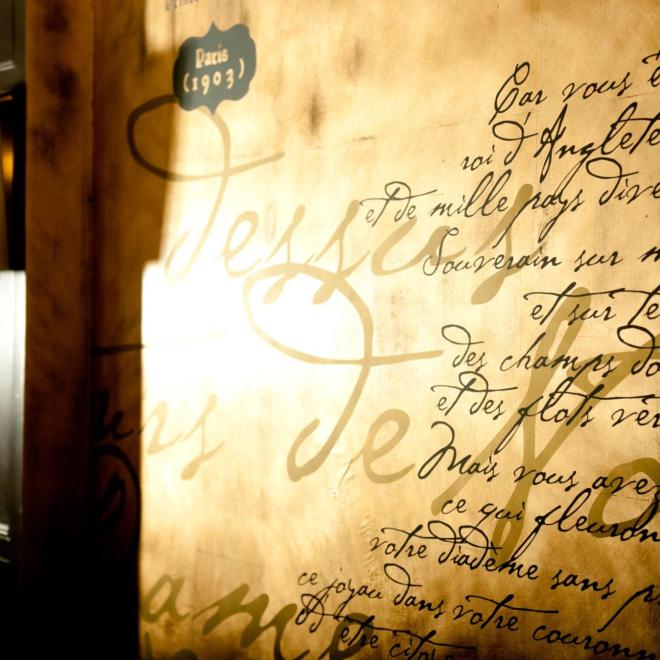 Paris
(1903)
Car vous
roi d'Anglete
et de mille pays dive
Souverain sur m
et sur te
des champs do
et des flots ver
Mais vous avez
ce qui fleuron
votre diadème sans p
ce joyau dans votre couronn
d'être cito
dessus
urs de No
ame